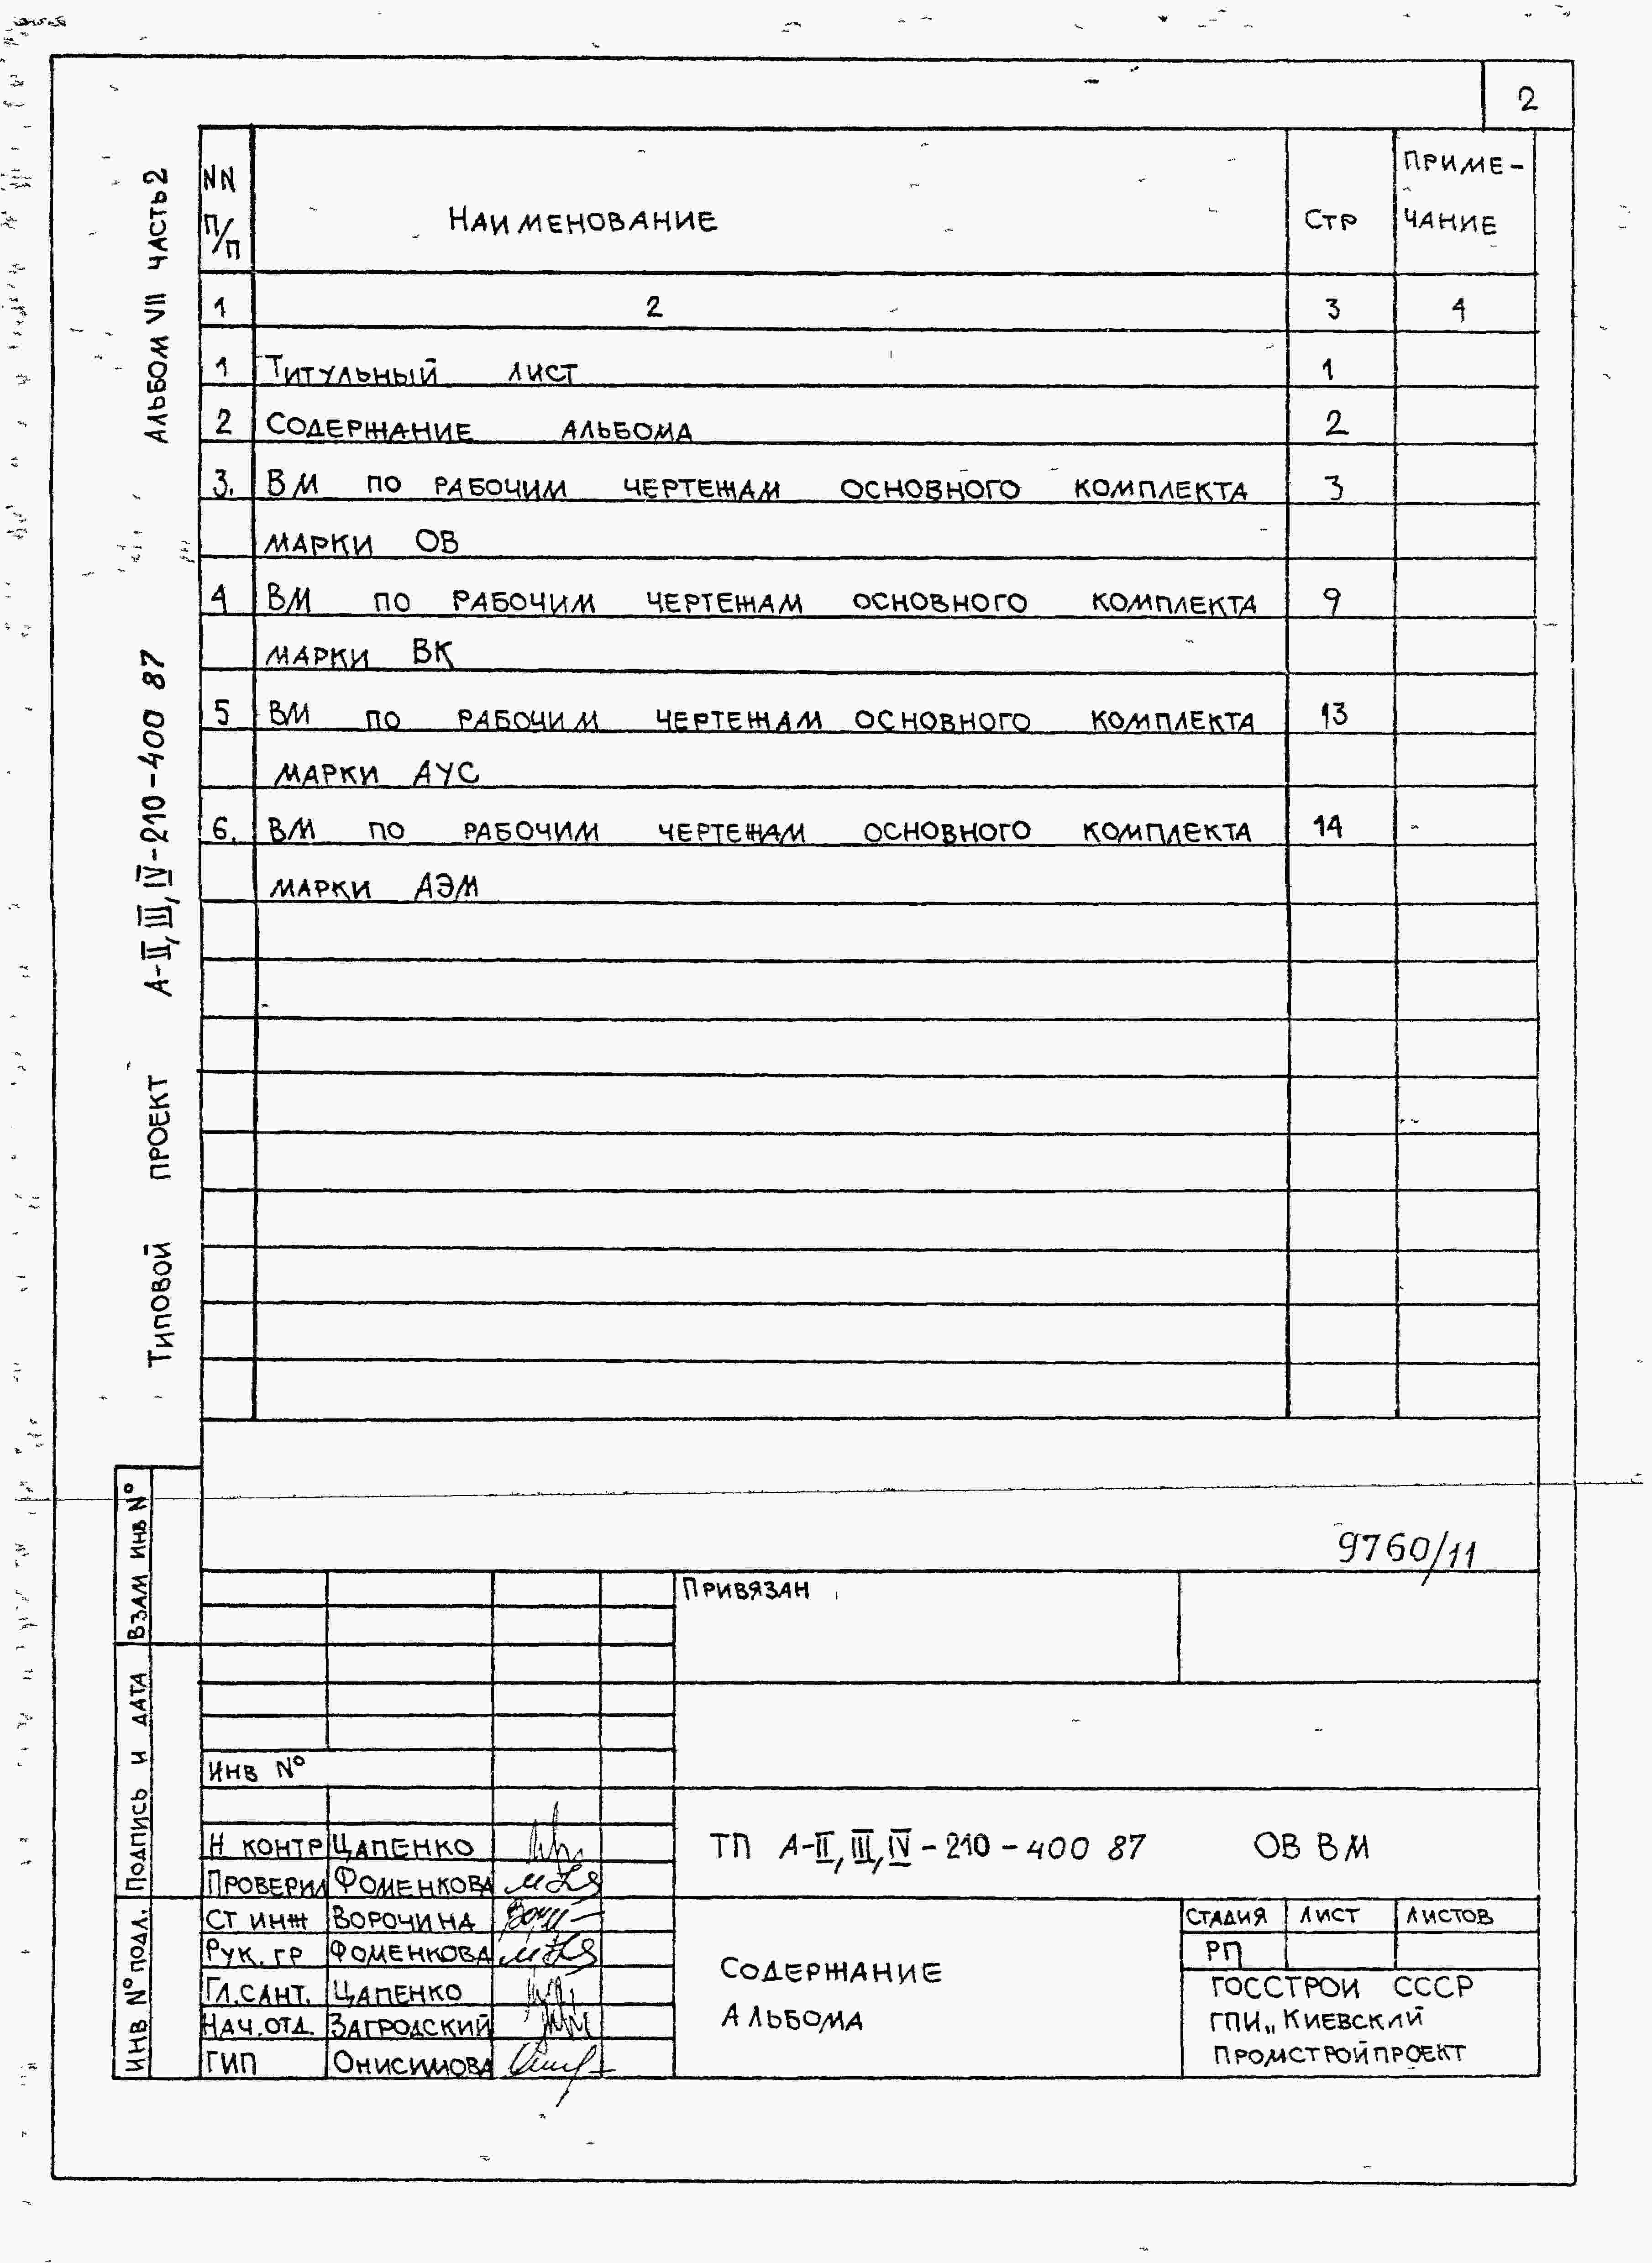 2
NN П/П НАИМЕНОВАНИЕ СТР ПРИМЕ-
ЧАНИЕ
1 2 3 4
1 ТИТУЛЬНЫЙ ЛИСТ 1
2 СОДЕРЖАНИЕ АЛЬБОМА 2
3. ВМ ПО РАБОЧИМ ЧЕРТЕЖАМ ОСНОВНОГО КОМПЛЕКТА 3
МАРКИ ОВ
4 ВМ ПО РАБОЧИМ ЧЕРТЕЖАМ ОСНОВНОГО КОМПЛЕКТА 9
МАРКИ ВК
5 ВМ ПО РАБОЧИМ ЧЕРТЕЖАМ ОСНОВНОГО КОМПЛЕКТА 13
МАРКИ АУС
6. ВМ ПО РАБОЧИМ ЧЕРТЕЖАМ ОСНОВНОГО КОМПЛЕКТА 14
МАРКИ АЭМ
ТИПОВОЙ ПРОЕКТ А-II, III, IV-210-400 87 АЛЬБОМ VII ЧАСТЬ 2
9760/11
ПРИВЯЗАН
ИНВ N°
Н КОНТР ЦАПЕНКО
ПРОВЕРИЛ ФОМЕНКОВА
СТ ИНЖ ВОРОЧИНА
РУК. ГР ФОМЕНКОВА
ГЛ.САНТ. ЦАПЕНКО
НАЧ.ОТД. ЗАГРОДСКИЙ
ГИП ОНИСИМОВА
ТП А-II, III, IV-210-400 87 ОВ ВМ
СОДЕРЖАНИЕ
АЛЬБОМА
СТАДИЯ ЛИСТ ЛИСТОВ
РП
ГОССТРОИ СССР
ГПИ „КИЕВСКИЙ
ПРОМСТРОЙПРОЕКТ
ИНВ N° ПОДЛ. ПОДПИСЬ И ДАТА ВЗАМ ИНВ N°